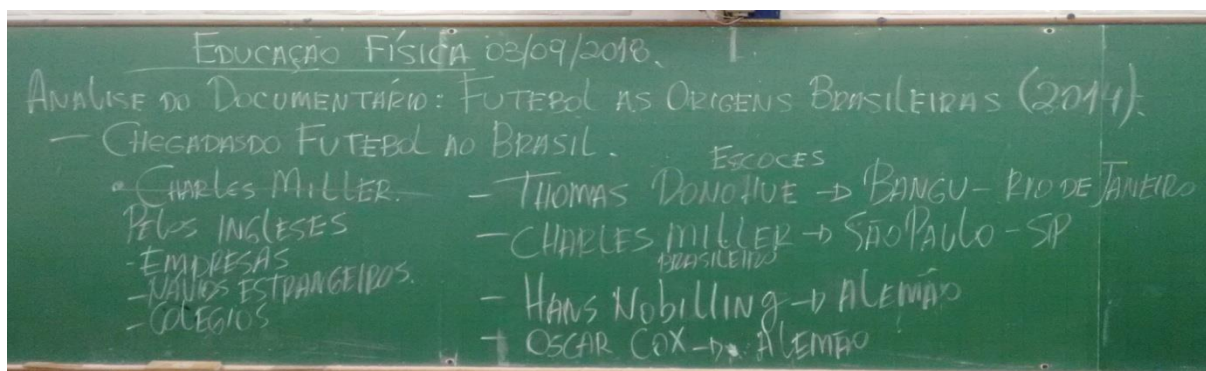 EDUCAÇÃO FÍSICA 03/09/2018.
ANALISE DO DOCUMENTÁRIO: FUTEBOL AS ORIGENS BRASILEIRAS (2014).
- CHEGADAS DO FUTEBOL AO BRASIL.
• CHARLES MILLER.
PELOS INGLESES
- EMPRESAS
- NAVIOS ESTRANGEIROS.
- COLEGIOS
ESCOCES
- THOMAS DONOHUE → BANGU - RIO DE JANEIRO
- CHARLES MILLER → SÃO PAULO - SP
BRASILEIRO
- HANS NOBILLING → ALEMÃO
- OSCAR COX → ALEMÃO